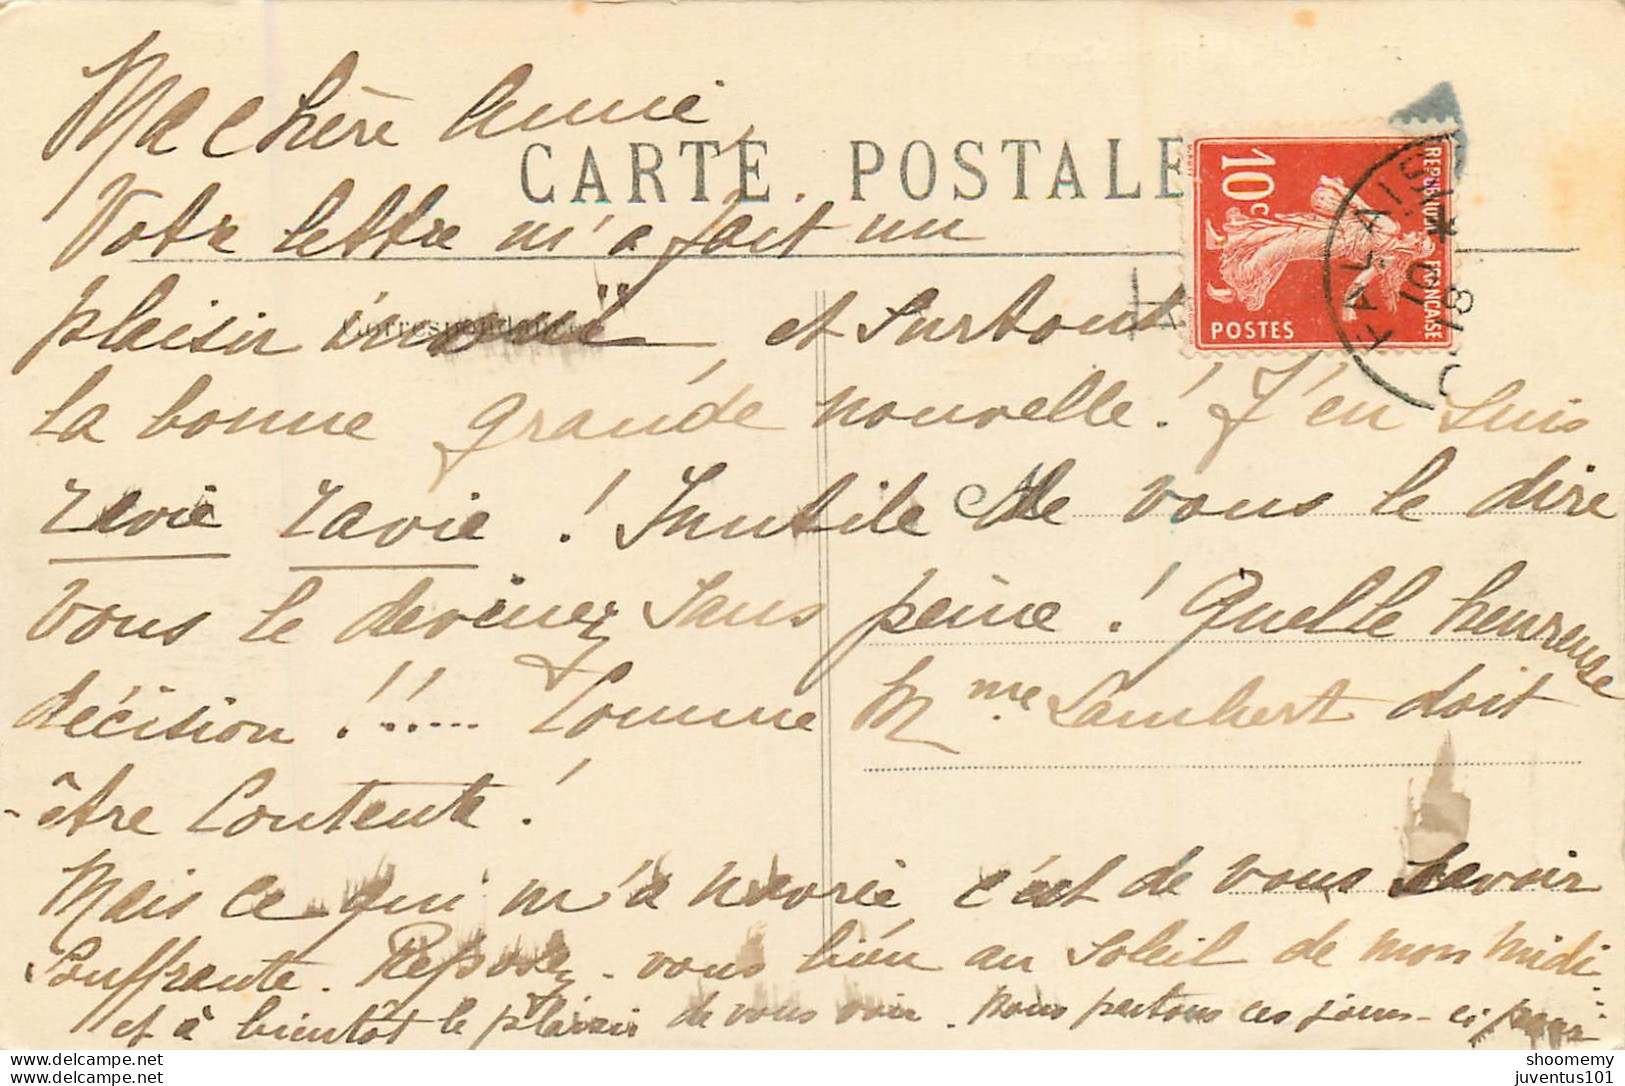 Ma chère Amie,
CARTE POSTALE
Votre lettre m'a fait un
Correspondance
plaisir inouï et surtout
la bonne grande nouvelle ! J'en suis
ravie ravie ! Inutile de vous le dire
vous le devinez sans peine ! Quelle heureuse
décision !!..... Comme Mme Lambert doit
être contente !
Mais ce qui m'a navrée c'est de vous savoir
souffrante. Reposez-vous bien au soleil de mon midi
et à bientôt le plaisir de vous voir. nous partons ces jours-ci pour
REPUBLIQUE FRANÇAISE
10c
POSTES
FALAISE
10 *
18
shoomemy
juventus101